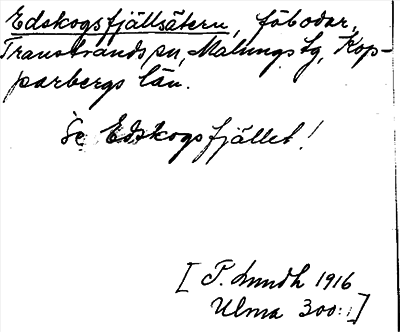 Edskogsfjällsätern, fäbodar,
Transtrands sn, Malungs tg, Kop-
parbergs län.
Se Edskogsfjället!
[P. Lundh 1916
Ulma 300:1]